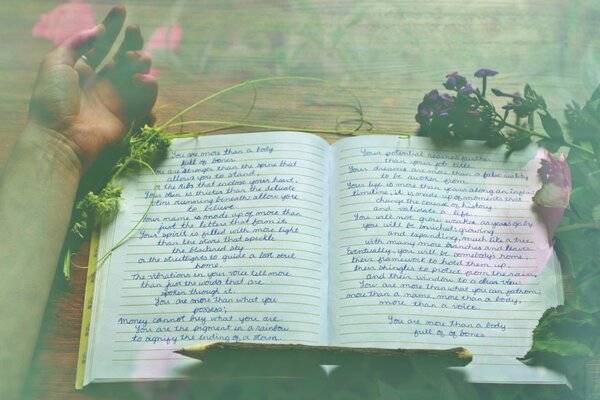 You are more than a body
full of bones.
You are stronger than the spine that
allows you to stand,
or the ribs that encase your heart.
Your veins is thicker than the delicate
skin running beneath allow you
to believe.
Your name is made up of more than
just the letters that form it.
Your spirit is filled with more light
than the stars that speckle
the blackened sky
or the streetlights to guide a lost soul
home.
The vibrations in your voice tell more
than just the words that are
spoken through it.
You are more than what you
possess;
Money cannot buy what you are.
You are the pigment in a rainbow
to signify the ending of a storm.
Your potential reaches further
than your feet.
Your dreams are more than a false reality
to be sold.
Your life is more than years along an
timeline; it is made up of moments that
change the course of history
and validate a life.
You will not grow weaker as years go by,
you will be enriched, growing
and expanding, much like a tree,
with many more branches and leaves.
Eventually, you will be somebody's home,
their framework to hold them up,
their shingles to protect from the rain,
and their window to a clear day.
You are more than what you can fathom,
more than a name, more than a body,
more than a voice.
You are more than a body
full of of bones.